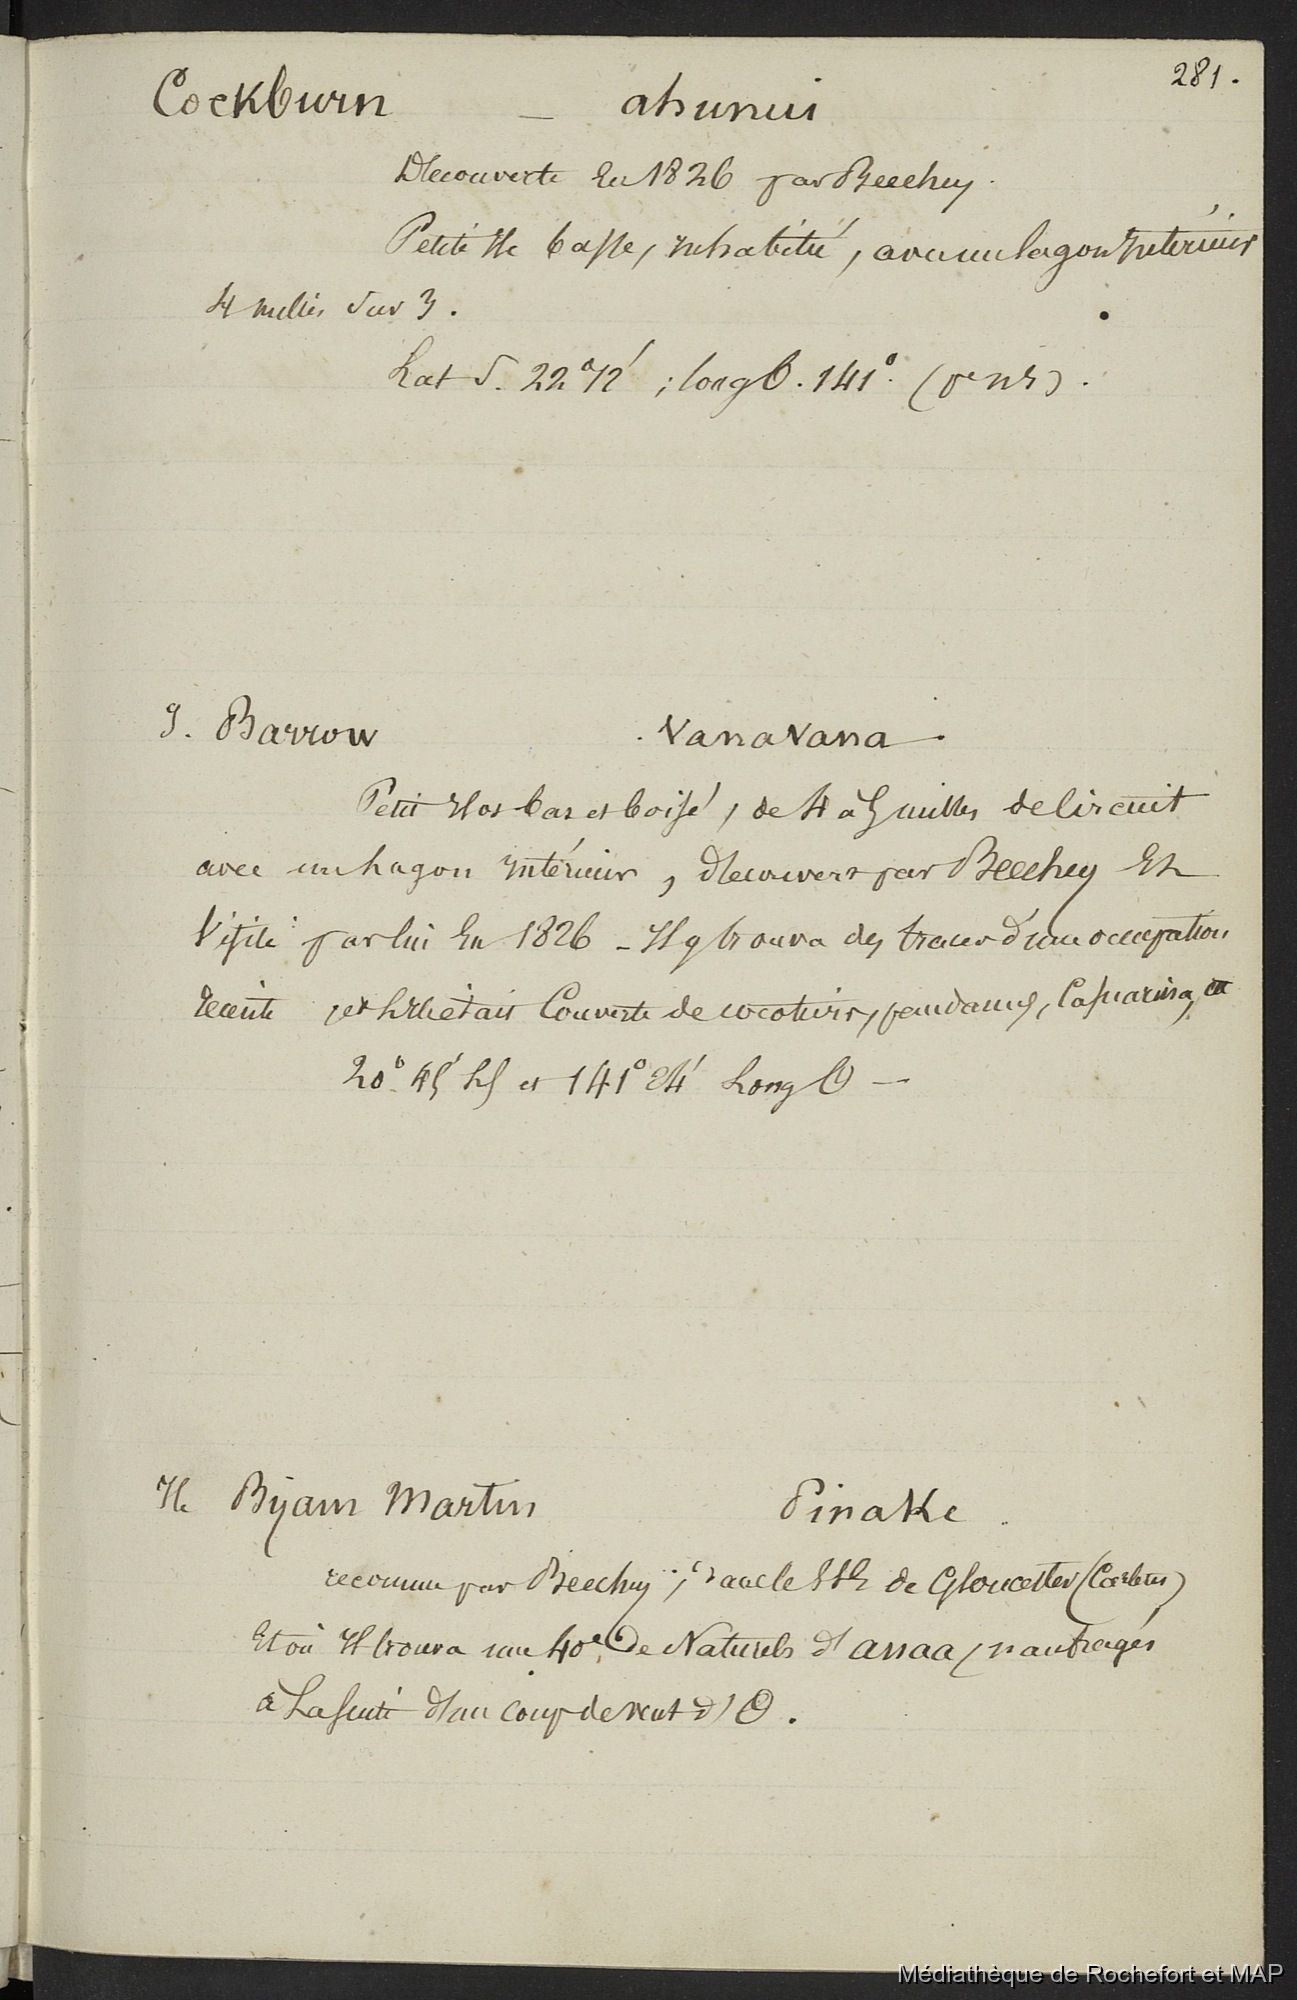 281.
Cockburn — ahunui
Découverte En 1826 par Beechey.
Petite Ile basse, Inhabitée, avec un lagon Intérieur
4 milles sur 3.
Lat S. 22°12' ; long O. 141°.
I. Barrow . Vanavana .
Petit Ilot bas et boisé, de 4 à 5 milles de Circuit
avec un Lagon Intérieur, découvert par Beechey Et
Visité par lui En 1826 - Il y trouva des traces d'une occupation
récente était Couverte de cocotiers, pandanus, Casuarina,
20° 45' LS et 141° 24' Long O —
Ile Byam Martin Pinake .
reconnu par Beechey ; de Gloucester
Et où Il trouva une 40e de Naturels d'anaa, naufragés
à La suite d'un coup de vent d'O.
Médiathèque de Rochefort et MAP